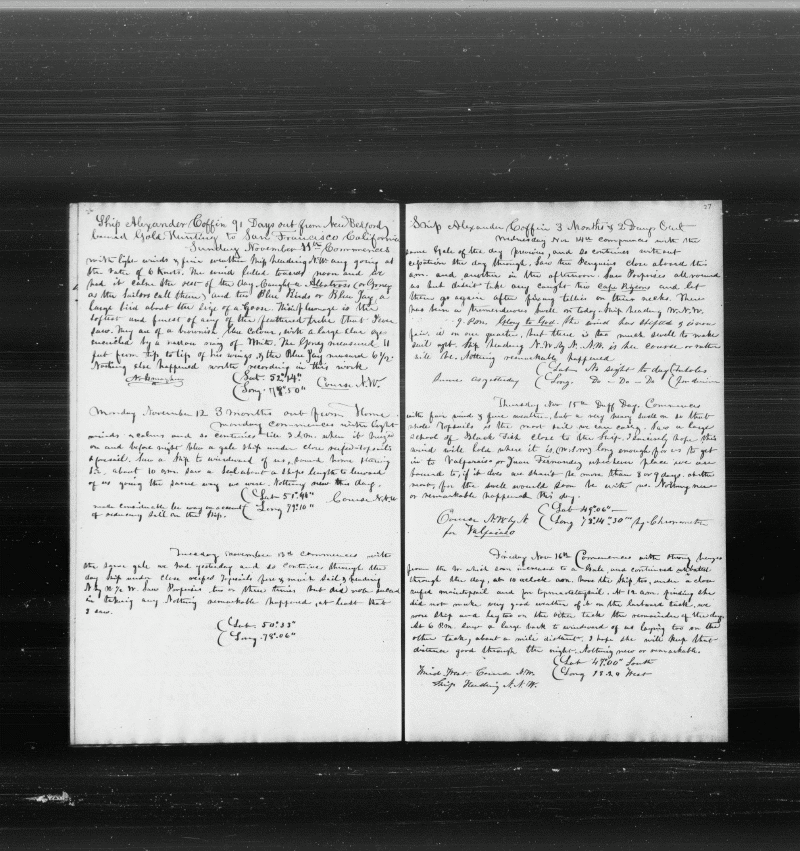 Ship Alexander Coffin 91 Days out from New Bedford
bound Gold Hunting to San Francisco California
Sunday November 11th Commences
with light winds & fine weather Ship heading N.W. any going at
the rate of 6 Knots. The wind lulled towards noon and we
had it calm the rest of the day. Caught a Albatross (or Goney
as the Sailors call them) and two Blue Birds or Blue Jay, a
large bird about the size of a Goose. This plumage is the
softest and finest of any of the feathered tribe that I ever
saw. They are of a brownish blue colour, with a large eye
encircled by a narrow ring of White. The Goney measured 11
feet from tip to tip of his wings, & the Blue Jay measured 6 1/2.
Nothing else happened worth recording in this work
Lat. 52°.44" Course N.W.
Long. 78°.50"
Monday November 12 3 months out from Home
Monday commences with light
winds & calms and so continues till 3 A.m. when it breezes
on and before night blew a gale ship under close reefed topsails
& foresail. Saw a Ship to windward of us, bound home
about 10 a.m. saw a Sail about a ships length to leeward
of us going the same way we were. Nothing new this day.
Lat 51°.48" Course N.N.W
Long 79°.10"
made considerable lee way on account
of reducing sail on the ship.
Tuesday November 13th Commences with
the same gale we had yesterday and so continues through the
day ship under close reefed Topsails fore & main sail & heading
N by W 1/2 W. Saw Porpoises two or three times but did not succeed
in taking any. Nothing remarkable happened, at least that
I saw.
Lat. 50°.33"
Long. 79°.06"
37
Ship Alexander Coffin 3 Months & 2 Days Out
Wednesday Nov 14th Commences with the
same Gale of the day previous, and so continues without
the day through. Saw two Penguins close aboard this
a.m. and another in the afternoon. Saw Porpoises all round
us but didn't take any caught two Cape Pigeons and let
them go again after fixing tallies on their necks. There
has been a tremendous swell on today. Ship heading W.N.W.
9. P.m. Glory to God. The wind has shifted & is now
fair, is on our quarter, but there is too much swell to make
sail yet. Ship heading N.W. by N. N.W. is her course or rather
will be. Nothing remarkable happened
Lat No Sight to day
Long. Do - Do - Do
Same as yesterday
Thursday Nov 15th Duff Day. Commences
with fair wind & fine weather, but a very heavy swell on so that
whole Topsails is the most sail we can carry. Saw a large
school of Black Fish close to the Ship. I sincerely hope this
wind will hold where it is, (W.S.W.) long enough for us to get
in to Valparaiso or Juan Fernandez whichever place we are
bound to, if it does we shan't be more than 8 or 9 days at the
most, for the swell would soon be with us. Nothing new
or remarkable happened this day.
Lat 49°.06"
Course N.W by N Long 78°.14'.30" by Chronometer
for Valparaiso
Friday Nov 16th Commences with strong breezes
from the W which soon increased to a Gale, and continued
through the day, at 10 oclock a.m. hove the Ship too, under a close
reefed maintopsail and fore topmast staysail. At 12 a.m. finding she
did not make very good weather of it on the larboard tack, we
wore ship and lay too on the other tack the remainder of the day.
At 6 P.m. saw a large bark to windward of us laying too on the
other tack, about a mile distant. I hope she will keep that
distance good through the night. Nothing new or remarkable.
Lat 47°.00" South
Wind West Course N.W. Long West
Ship Heading N.N.W.